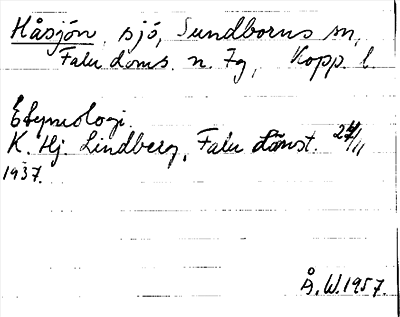 Håsjön, sjö, Sundborns sn,
Falu doms. n. Tg, Kopp. l.
Etymologi.
K. Hj. Lindberg, Falu länst. 24/11
1937.
Å.W. 1957.